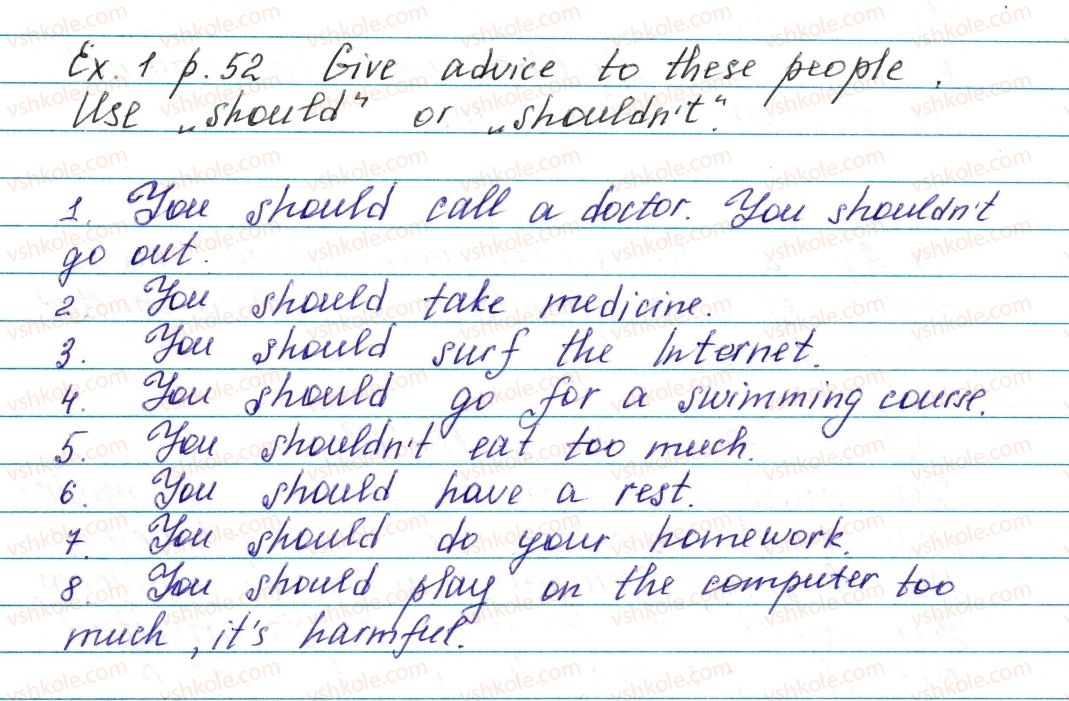 Ex. 1 p. 52 Give advice to these people.
Use „should“ or „shouldn't“.
1. You should call a doctor. You shouldn't
go out.
2. You should take medicine.
3. You should surf the Internet.
4. You should go for a swimming course.
5. You shouldn't eat too much.
6. You should have a rest.
7. You should do your homework.
8. You should play on the computer too
much, it's harmful.